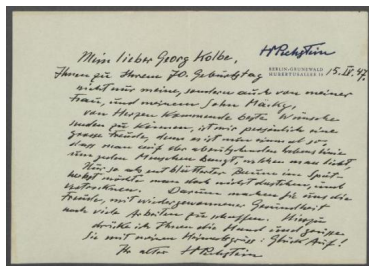 Mein lieber Georg Kolbe,
HPechstein
BERLIN-GRUNEWALD
HUBERTUSALLEE 18
15. IV. 47.
Ihnen zu Ihrem 70. Geburtstag
nicht nur meine, sondern auch von meiner
Frau, und meinem Sohn Mäcky,
von Herzen kommende beste Wünsche
senden zu können, ist mir persönlich eine
grosse Freude, denn es ist nun einmal so,
dass man auf der absteigenden Lebenslinie
um jeden Menschen bangt, welchen man liebt
Nur so als entblätterter Baum im Spät-
herbst möchte man doch nicht dastehen, und
vertrocknen. Darum machen Sie uns die
Freude, mit wiedergewonnener Gesundheit
noch viele Arbeiten zu schaffen. Hierzu
drücke ich Ihnen die Hand und grüsse
Sie mit meinem Heimatgruss: Glück Auf!
Ihr alter HPechstein